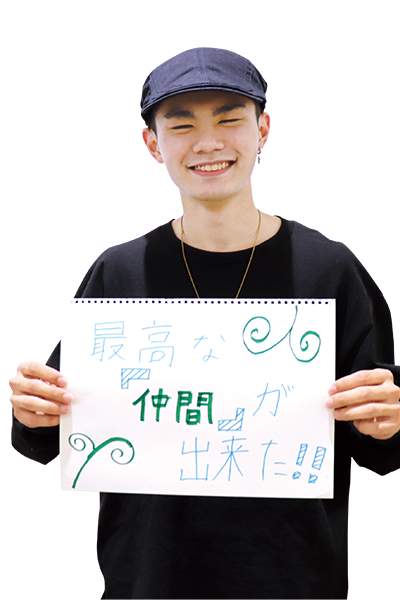 最高な
『仲間』が
出来た!!